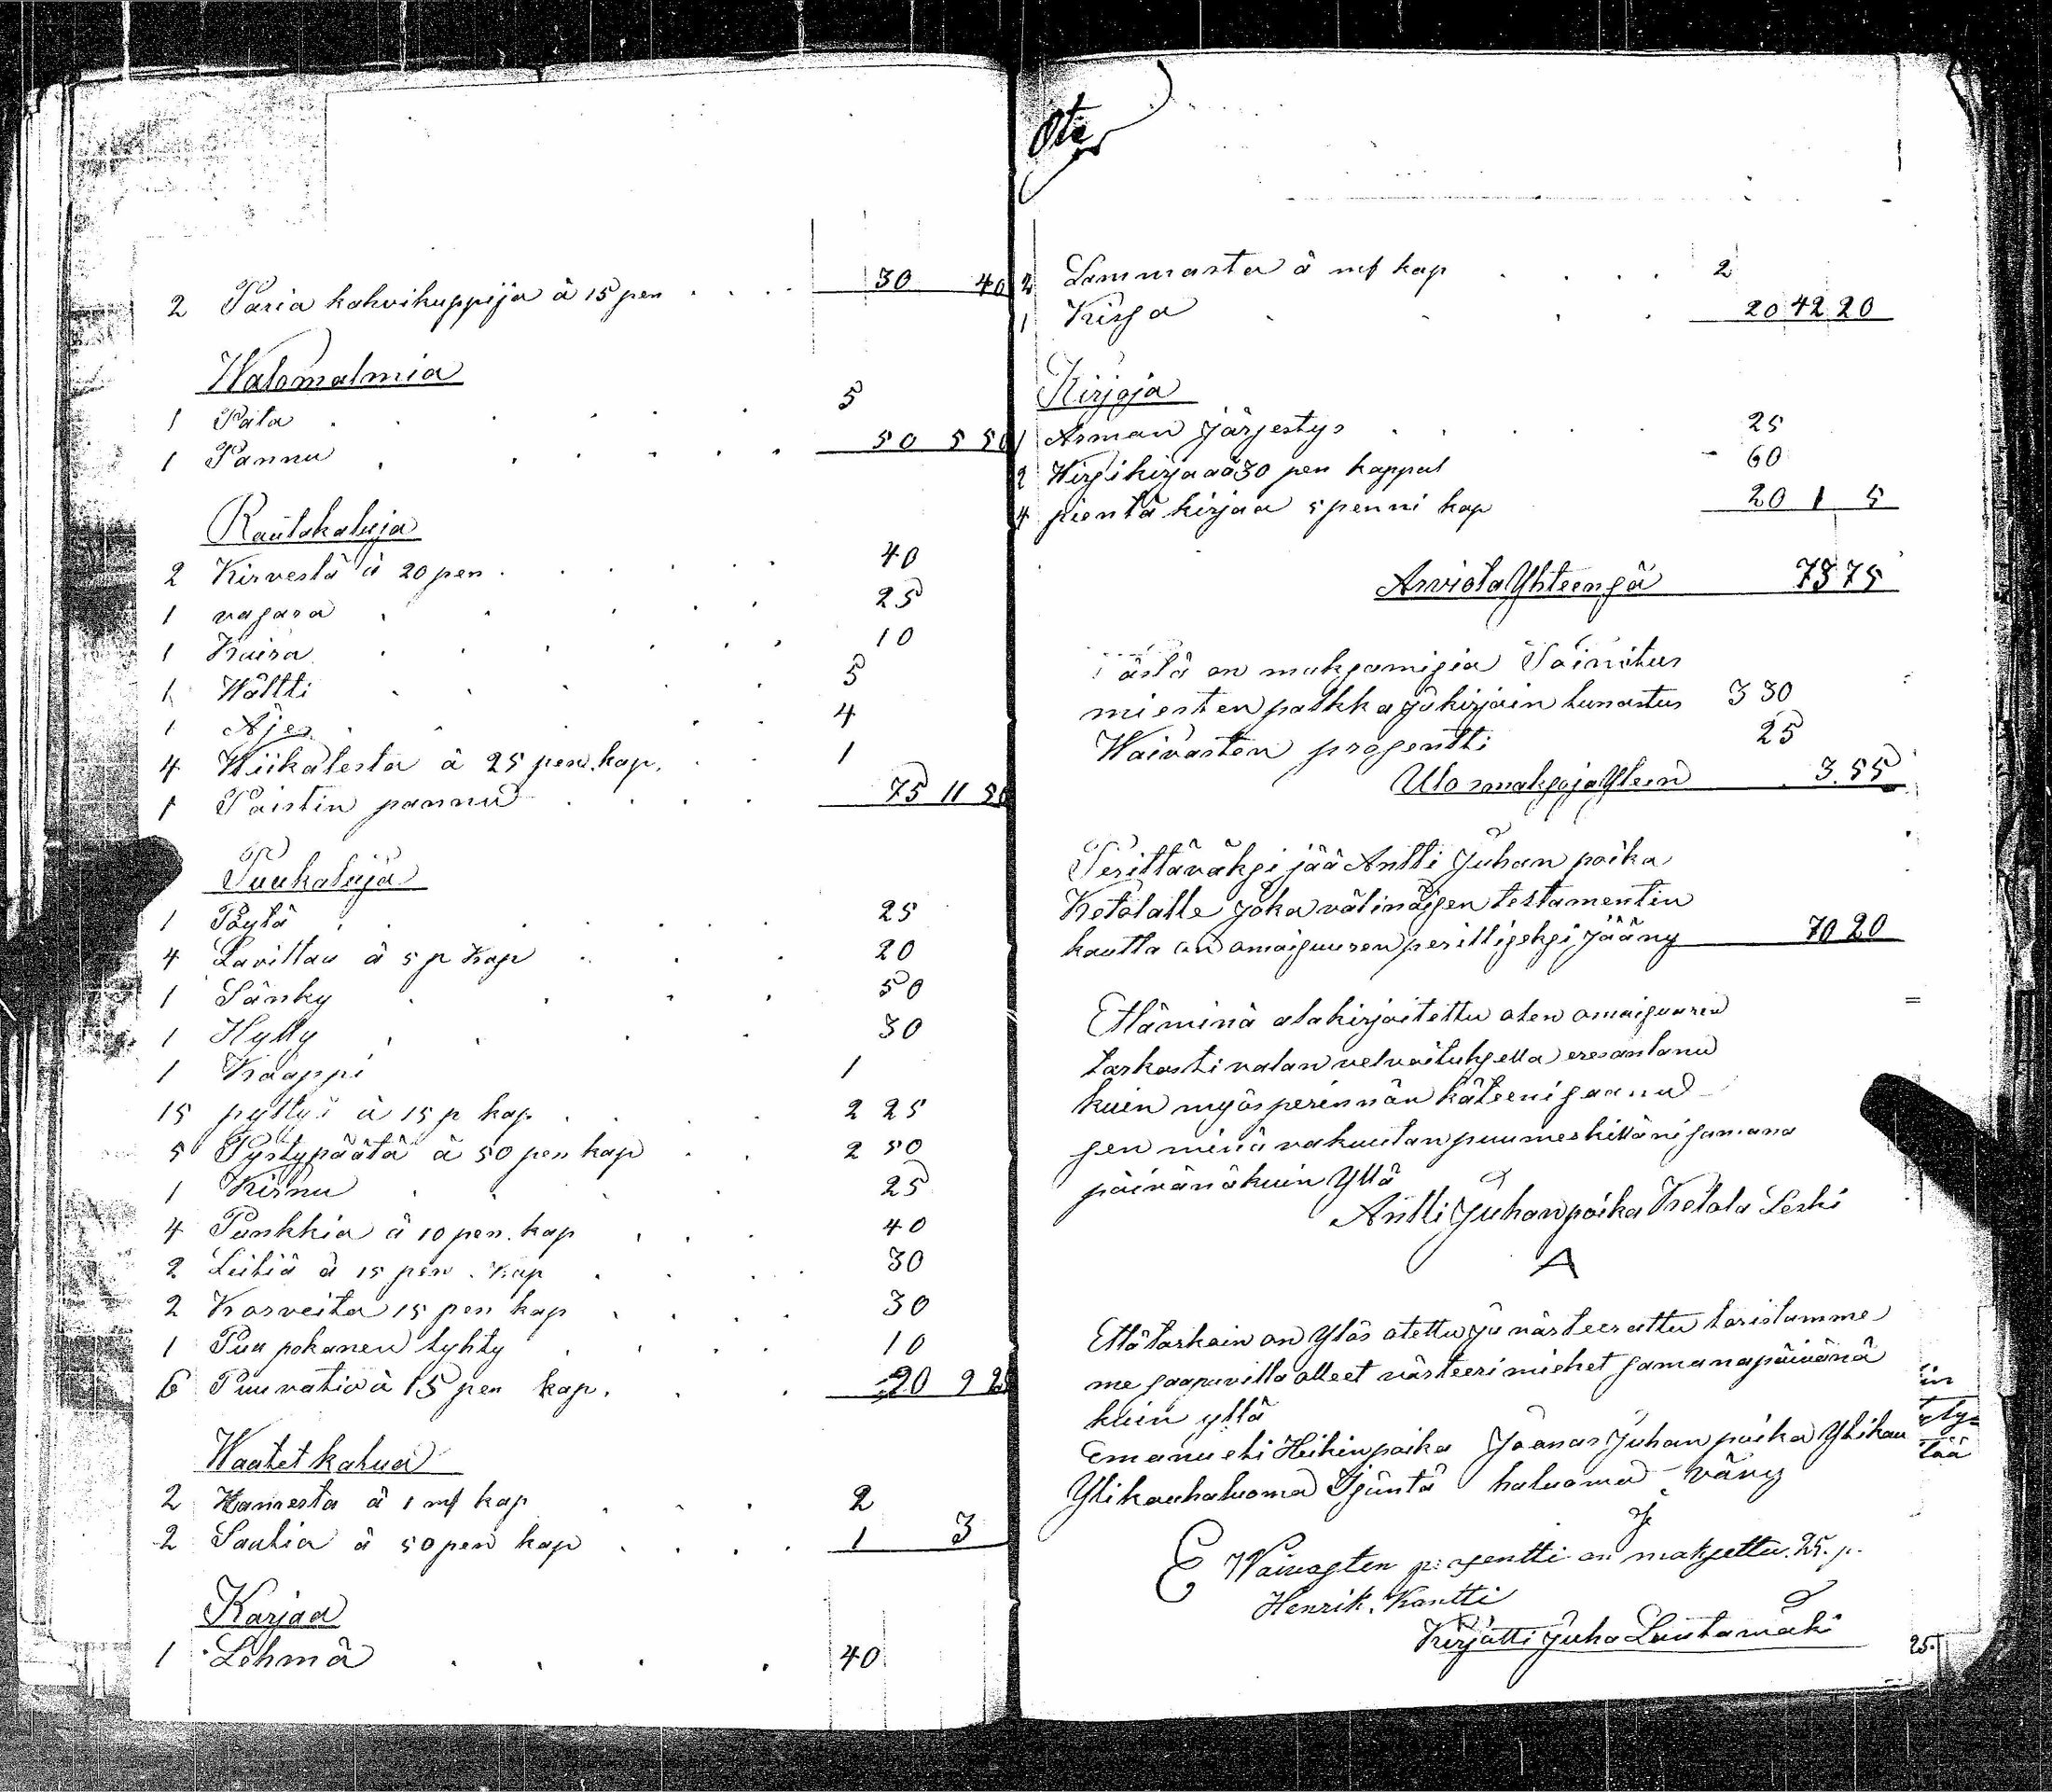 2 Paria kahvikuppija à 15 pen . . . . 30 40
Walomalmia
1 Pata . . . . . 5
1 Pannu . . . . . 50 5 50
Rautakaluja
2 Kirvestä à 20 pen . . . . . 40
1 vasara . . . . . 25
1 Kaira . . . . . 10
1 Wältti . . . . . 5
1 Äjes . . . . 4
4 Wiikatesta à 25 pen. kap. . . 1
1 Paistin pannu . . . . 75 11 50
Puukaluja
1 Pöytä . . . . . 25
4 Lavittaa à 5 p kap . . . 20
1 Sänky . . . . 50
1 Hylly . . . . 30
1 Kaappi 1
15 pyttyä à 15 p kap . . . 2 25
5 Pystypäätä à 50 pen kap . . 2 50
1 Kirnu . . . . 25
4 Punkkia à 10 pen. kap . . . 40
2 Leiliä à 15 pen. kap . . . . 30
2 Korveita 15 pen kap . . . 30
1 Puu pohanen lyhty . . . . 10
6 Puuvatia à 15 pen kap. . . 90 9 25
Waatet kalua
2 Hamesta à 1 mf kap . . . 2
2 Saalia à 50 pen kap . . . . 1 3
Karjaa
1 Lehmä . . . . 40
2 Lammasta à mf kap . . . . 2
1 Kirsa . . . . 20 42 20
Kirjoja
1 Asman järjestys . . . . 25
2 Wirsikirjaa à 30 pen kappal 60
4 pientä kirjaa 5 penni kap 20 1 5
Arviota Yhteensä 73 75
Tästä on maksamisia Toimitus
miesten palkka ja kirjain lunastus 3 30
Waivasten prosentti 25
Ulosmaksoja Yhteen 3.55
Perittäväksi jää Antti Juhan poika
Ketolalle joka välinäisen testamentin
kautta on omaisuuren perilliseksi jääny 70 20
Että minä alakirjoitettu olen omaisuuren
tarkasti valan velvoituksella eresantanu
kuin myös perinnön käteeni saanu
sen minä vakuutan puumerkilläni samana
päivänä kuin Yllä
Antti Juhanpoika Ketola Leski
A
Että tarkoin on Ylös otettu ja värteerattu toristamme
me saapuvilla olleet värteerimiehet samana päivänä
kuin yllä
Emanueli Heikinpoika Joonas Juhan poika Ylikau
Ylikauhaluoma Isäntä haluoma vävy
E
Waivasten prosentti on maksettu. 25. p.
Henrik. Kantti
Kirjätti Juha Luutamäki
in
tää
25.